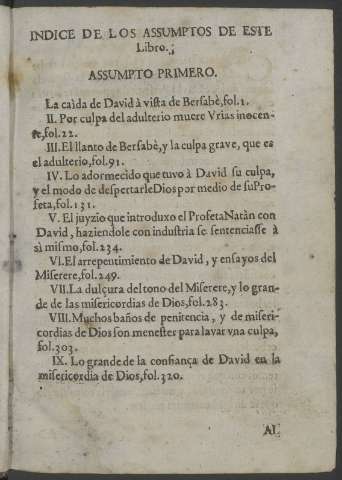 INDICE DE LOS ASSUMPTOS DE ESTE
Libro.;
ASSUMPTO PRIMERO.
La caida de David à vista de Bersabè, fol.1.
II. Por culpa del adulterio muere Vrias inocen-
te, fol.22.
III. El llanto de Bersabè, y la culpa grave, que es
el adulterio, fol.91.
IV. Lo adormecido que tuvo à David su culpa,
y el modo de despertarle Dios por medio de su Pro-
feta, fol.131.
V. El juyzio que introduxo el Profeta Natàn con
David, haziendole con industria se sentenciasse à
sì mismo, fol.234.
VI. El arrepentimiento de David, y ensayos del
Miserere, fol.249.
VII. La dulçura del tono del Miserere, y lo gran-
de de las misericordias de Dios, fol.283.
VIII. Muchos baños de penitencia, y de miseri-
cordias de Dios son menester para lavar vna culpa,
fol.303.
IX. Lo grande de la confiança de David en la
misericordia de Dios, fol.320.
AL